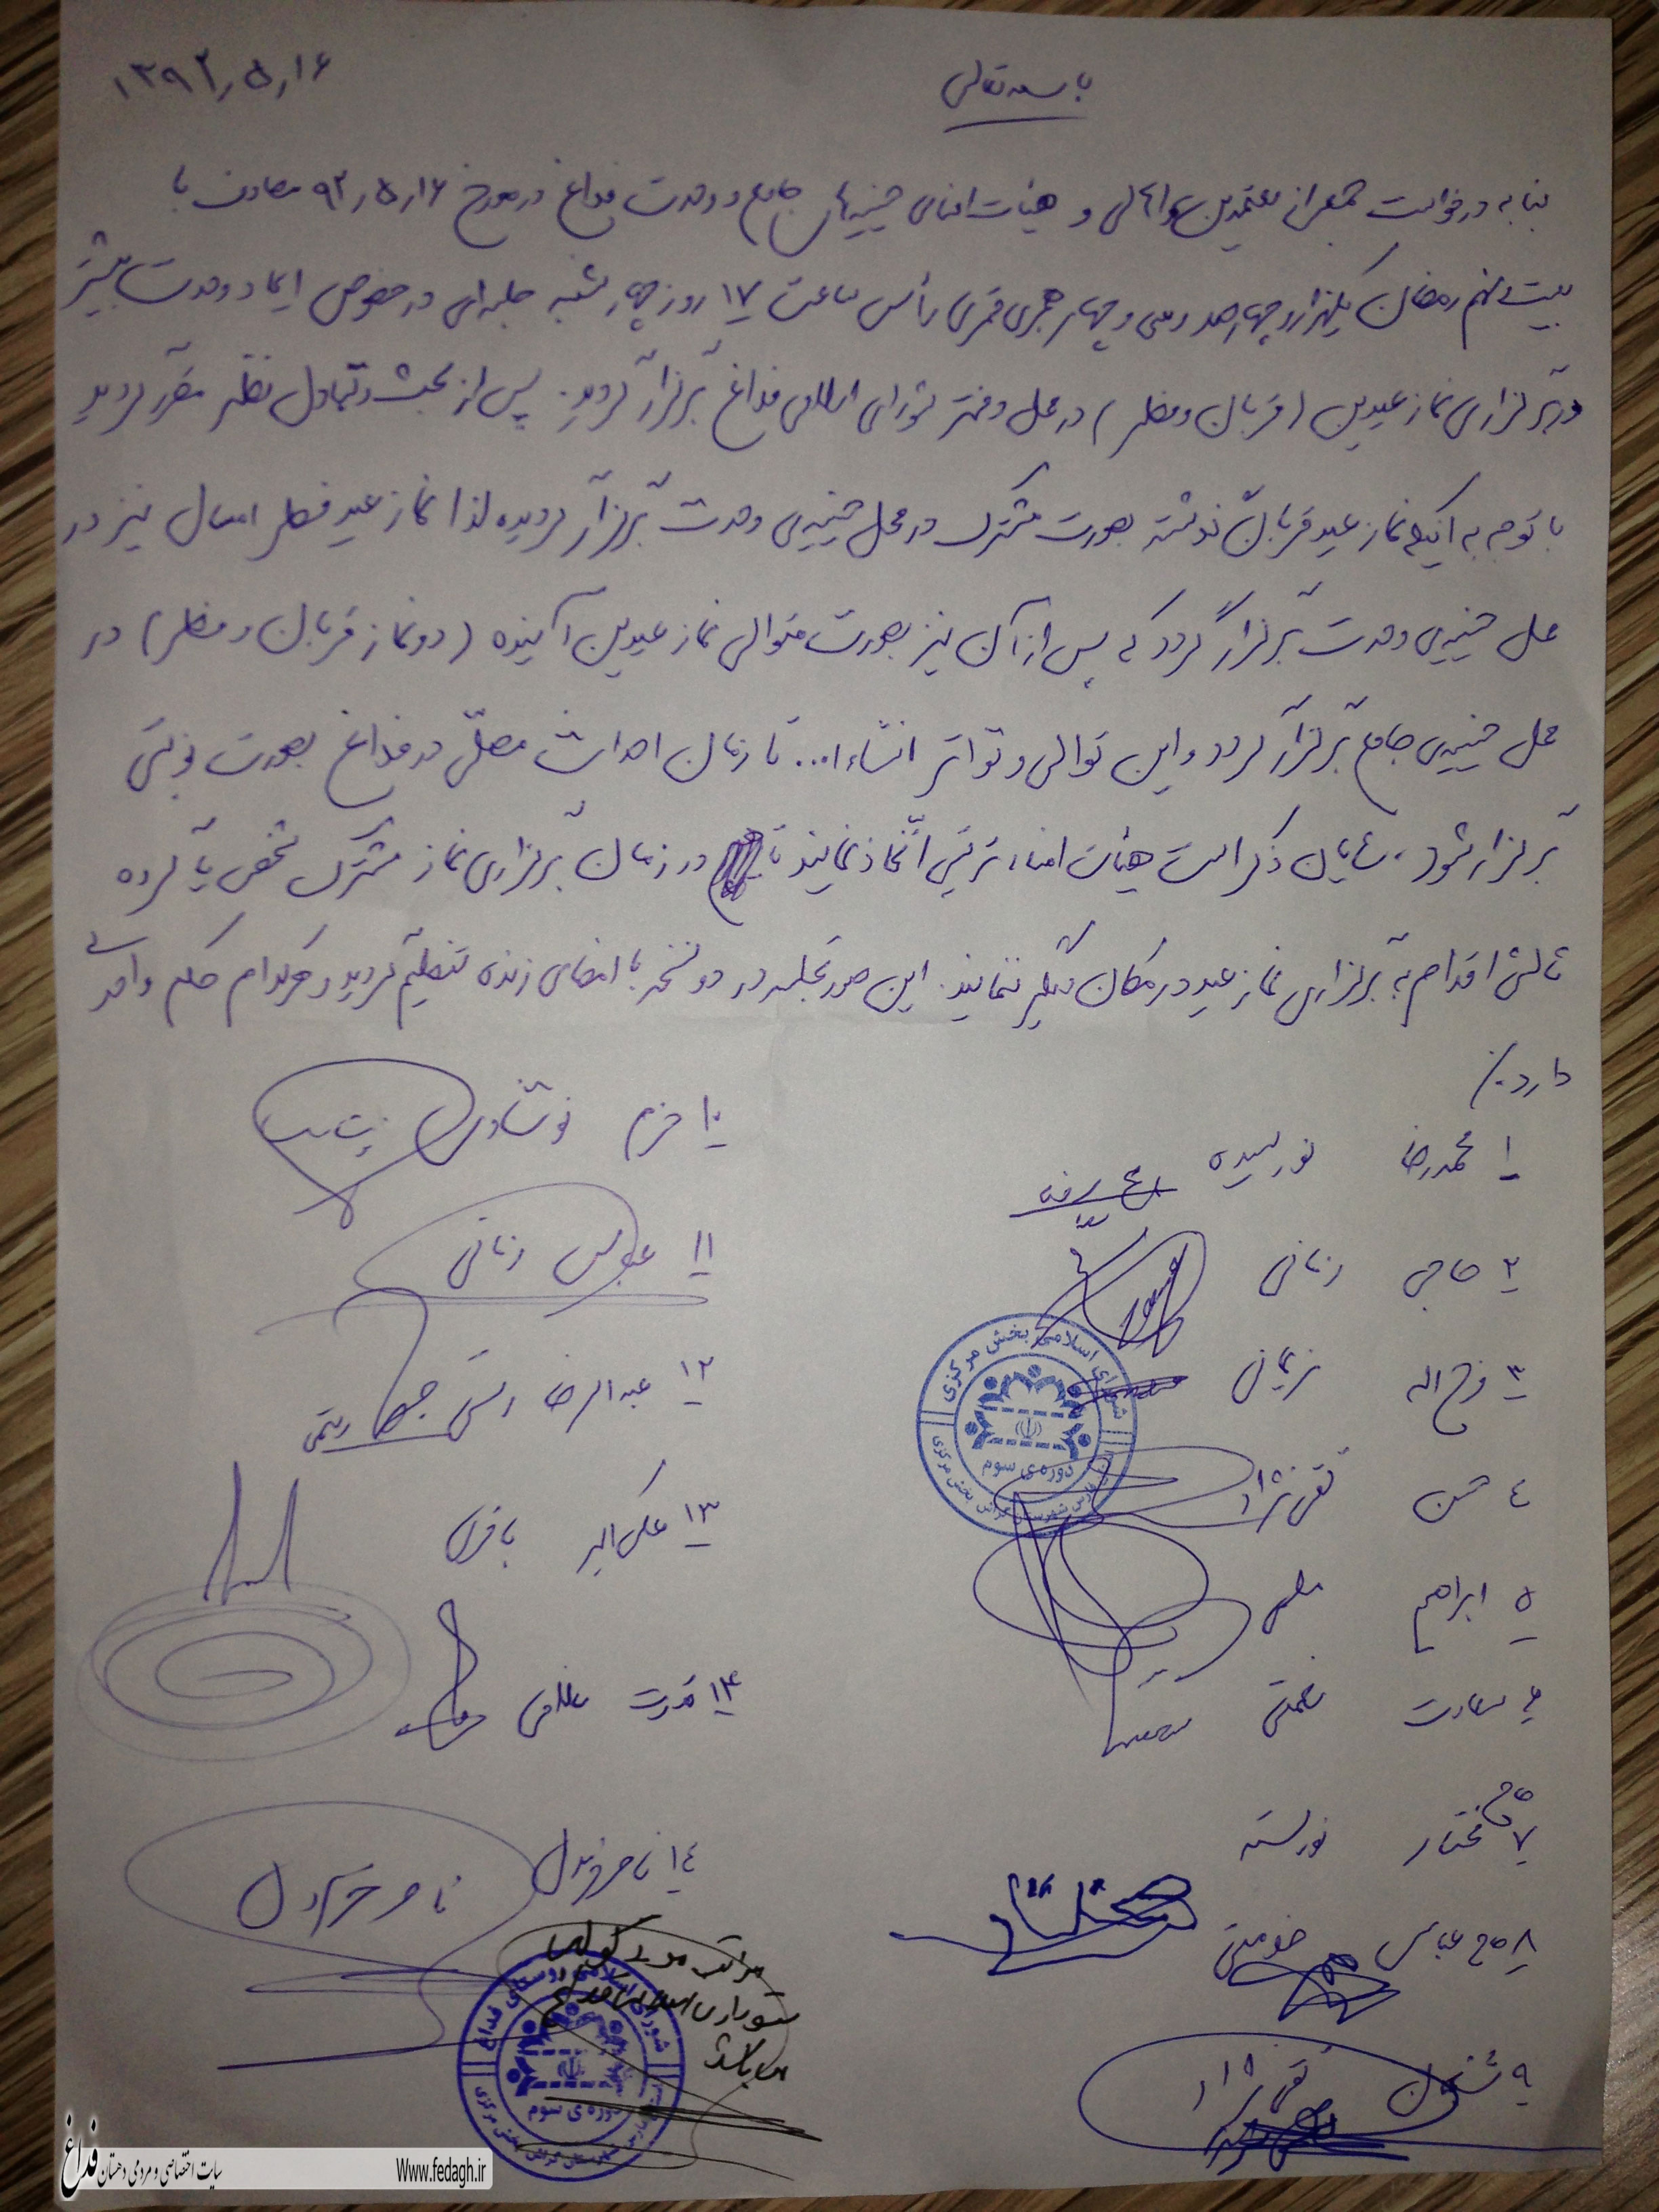 باسمه تعالی
۱۳۹۲٫۵٫۱۶
بنا به درخواست جمعی از معتمدین و اهالی و هیئات امنای حسینیه های جامع و وحدت فداغ در مورخ ۹۲٫۵٫۱۶ مصادف با
بیست و نهم رمضان یکهزار و چهارصد و سی و چهار هجری قمری رأس ساعت ۱۷ روز چهارشنبه جلسه ای در خصوص ایجاد وحدت بیشتر
در برگزاری نماز عیدین (قربان و فطر) در محل دفتر شورای اسلامی فداغ برگزار گردید. پس از بحث و تبادل نظر مقرر گردید
با توجه به اینکه نماز عید قربان گذشته بصورت مشترک در محل حسینیه ی وحدت برگزار گردیده لذا نماز عید فطر امسال نیز در
محل حسینیه ی وحدت برگزار گردد که پس از آن نیز بصورت متوالی نماز عیدین آینده (دو نماز قربان و فطر) در
محل حسینیه ی جامع برگزار گردد و این توالی و تواتر انشاءا... تا زمان احداث مصلّی در فداغ بصورت نوبتی
برگزار شود، شایان ذکر است هیئات امناء ترتیبی اتّخاذ نمایند تا در زمان برگزاری نماز مشترک شخص یا گروه
ثالثی اقدام به برگزاری نماز عید در مکان دیگر ننمایند. این صورتجلسه در دو نسخه با امضای زنده تنظیم گردید و هرکدام حکم واحدی
دارد./
۱ محمدرضا نورسیده
۲ حاجی زمانی
۳ فرج اله نریمان
شورای اسلامی بخش مرکزی
دوره ی سوم
فارس شهرستان گراش بخش مرکزی
۴ حسن تقی نژاد
۵ ابراهیم
۶ سعادت نعمتی
۷ حاج مختار نورسته
۸ حاج عباس
۹ تقی نژاد
۱۰ خرم نوشادی
۱۱ عباس زمانی
۱۲ عبدالرضا رستمی
رستمی
۱۳ علی اکبر باقری
۱۳ قدرت غلامی
۱۴ ناصر
مراتب مورد گواهی
شورای اسلامی فداغ
می باشد
شورای اسلامی روستای فداغ
دوره ی سوم
فارس شهرستان گراش بخش مرکزی
سایت اختصاصی و مردمی دهستان فداغ
Www.fedagh.ir